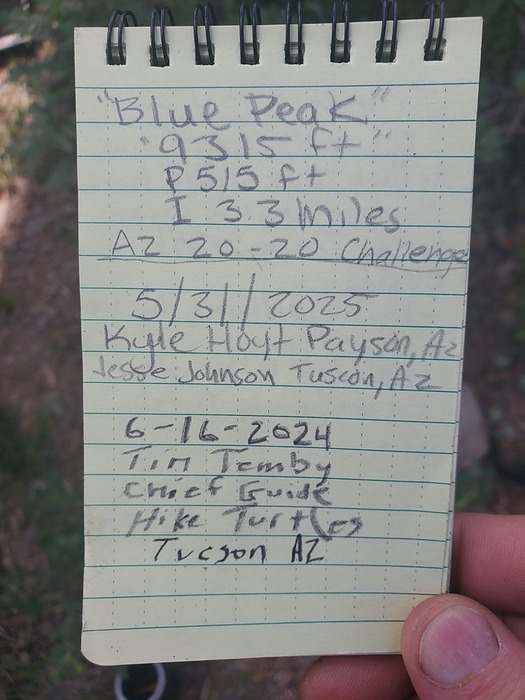 "Blue Peak"
"9315 ft"
P 515 ft
I 3.3 miles
AZ 20-20 Challenge
5/31/2025
Kyle Hoyt Payson, Az
Jesse Johnson Tuscon, Az
6-16-2024
Tim Temby
Chief Guide
Hike Turtles
Tucson AZ